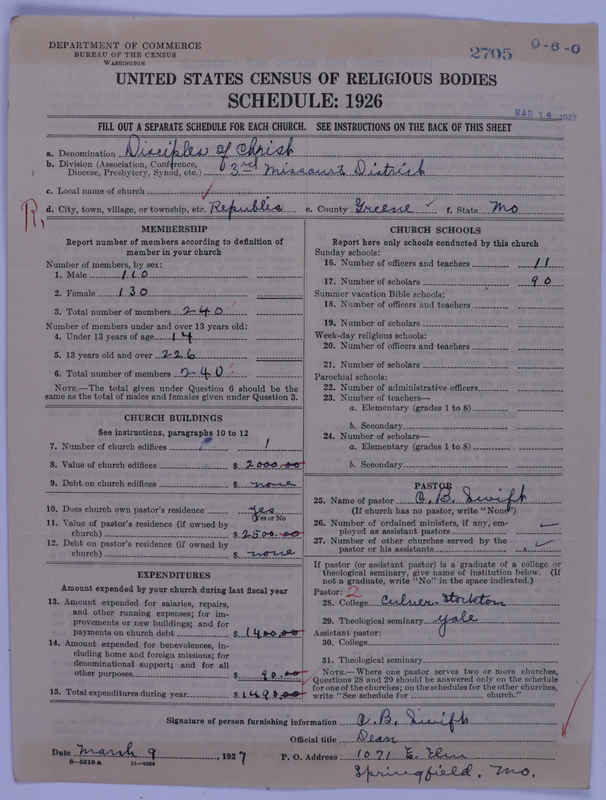 DEPARTMENT OF COMMERCE
BUREAU OF THE CENSUS
WASHINGTON
2705 0-6-0
UNITED STATES CENSUS OF RELIGIOUS BODIES
SCHEDULE: 1926
MAR 14 1927
FILL OUT A SEPARATE SCHEDULE FOR EACH CHURCH. SEE INSTRUCTIONS ON THE BACK OF THIS SHEET
a. Denomination Disciples of Christ
b. Division (Association, Conference, Diocese, Presbytery, Synod, etc.) 3rd Missouri District
c. Local name of church
R, d. City, town, village, or township, etc. Republic e. County Greene f. State Mo
MEMBERSHIP
Report number of members according to definition of
member in your church
Number of members, by sex:
1. Male 110
2. Female 130
3. Total number of members 240
Number of members under and over 13 years old:
4. Under 13 years of age 14
5. 13 years old and over 226
6. Total number of members 240
NOTE.—The total given under Question 6 should be the
same as the total of males and females given under Question 3.
CHURCH BUILDINGS
See instructions, paragraphs 10 to 12
7. Number of church edifices 1
8. Value of church edifices $ 2000.00
9. Debt on church edifices $ none
10. Does church own pastor's residence yes
(Yes or No)
11. Value of pastor's residence (if owned by
church) $ 2500.00
12. Debt on pastor's residence (if owned by
church) $ none
EXPENDITURES
Amount expended by your church during last fiscal year
13. Amount expended for salaries, repairs,
and other running expenses; for im-
provements or new buildings; and for
payments on church debt $ 1400.00
14. Amount expended for benevolences, in-
cluding home and foreign missions; for
denominational support; and for all
other purposes $ 90.00
15. Total expenditures during year $ 1490.00
CHURCH SCHOOLS
Report here only schools conducted by this church
Sunday schools:
16. Number of officers and teachers 11
17. Number of scholars 90
Summer vacation Bible schools:
18. Number of officers and teachers
19. Number of scholars
Week-day religious schools:
20. Number of officers and teachers
21. Number of scholars
Parochial schools:
22. Number of administrative officers
23. Number of teachers—
a. Elementary (grades 1 to 8)
b. Secondary
24. Number of scholars—
a. Elementary (grades 1 to 8)
b. Secondary
PASTOR
25. Name of pastor C. B. Swift
(If church has no pastor, write "None")
26. Number of ordained ministers, if any, em-
ployed as assistant pastors
27. Number of other churches served by the
pastor or his assistants
If pastor (or assistant pastor) is a graduate of a college or
theological seminary, give name of institution below. (If
not a graduate, write "No" in the space indicated.)
Pastor: 2
28. College Culver-Stockton
29. Theological seminary Yale
Assistant pastor:
30. College
31. Theological seminary
NOTE.—Where one pastor serves two or more churches,
Questions 28 and 29 should be answered only on the schedule
for one of the churches; on the schedules for the other churches,
write "See schedule for church."
Signature of person furnishing information C. B. Swift
Official title Dean
Date March 9, 1927 P. O. Address 1071 E. Elm
Springfield, Mo.